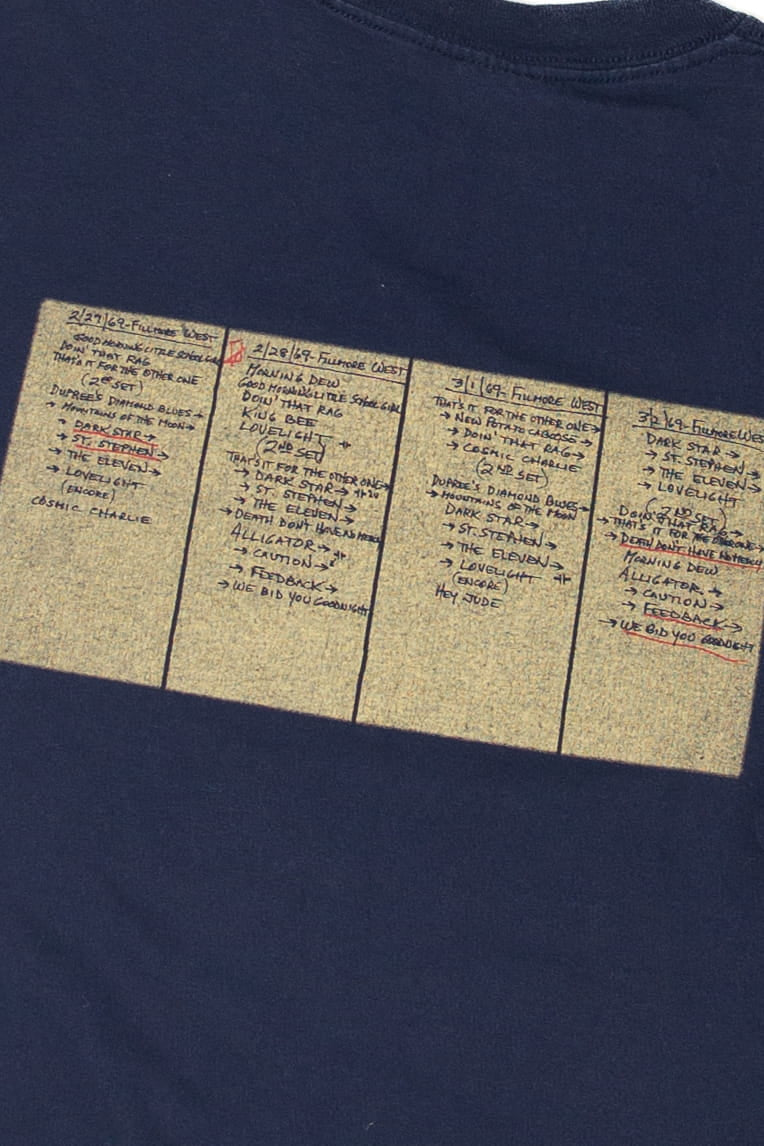 2/27/69-FILLMORE WEST
GOOD MORNING LITTLE SCHOOL GIRL
DOIN' THAT RAG
THAT'S IT FOR THE OTHER ONE
(2ND SET)
DUPREE'S DIAMOND BLUES→
→ MOUNTAINS OF THE MOON→
→ DARK STAR→
→ ST. STEPHEN→
→ THE ELEVEN→
→ LOVELIGHT
(ENCORE)
COSMIC CHARLIE
2/28/69-FILLMORE WEST
MORNING DEW
GOOD MORNING LITTLE SCHOOL GIRL
DOIN' THAT RAG
KING BEE
LOVELIGHT
(2ND SET)
THAT'S IT FOR THE OTHER ONE→
→ DARK STAR→
→ ST. STEPHEN→
→ THE ELEVEN→
→DEATH DON'T HAVE NO MERCY
ALLIGATOR→
→ CAUTION→
→ FEEDBACK→
→WE BID YOU GOODNIGHT
3/1/69-FILLMORE WEST
THAT'S IT FOR THE OTHER ONE→
→ NEW POTATO CABOOSE→
→ DOIN' THAT RAG→
→ COSMIC CHARLIE
(2ND SET)
DUPREE'S DIAMOND BLUES→
→MOUNTAINS OF THE MOON
DARK STAR→
→ST. STEPHEN→
→THE ELEVEN→
→ LOVELIGHT
(ENCORE)
HEY JUDE
3/2/69-FILLMORE WEST
DARK STAR→
→ ST. STEPHEN→
→ THE ELEVEN→
→ LOVELIGHT
(2ND SET)
DOIN' THAT RAG→
→THAT'S IT FOR THE OTHER ONE→
→ DEATH DON'T HAVE NO MERCY
MORNING DEW
ALLIGATOR→
→ CAUTION→
→ FEEDBACK→
→WE BID YOU GOODNIGHT